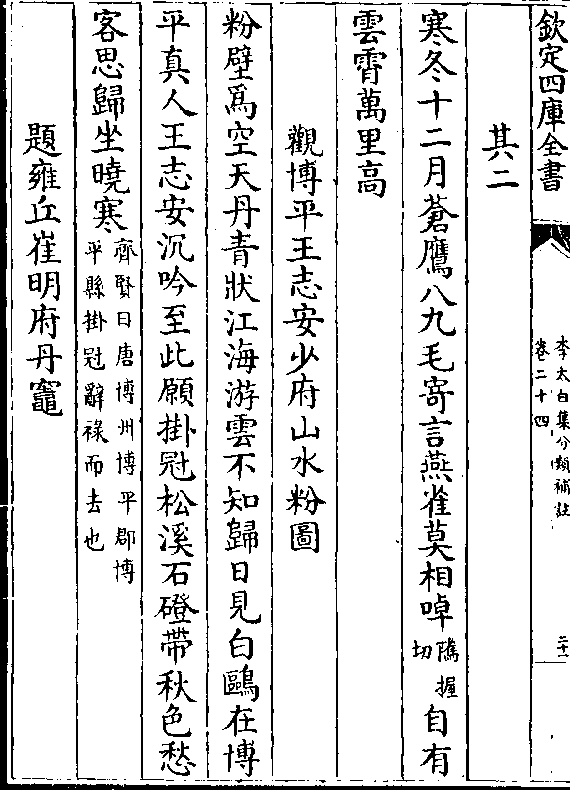 欽定四庫全書
李太白集分類補註
卷二十四
二十一
其二
寒冬十二月蒼鷹八九毛寄言燕雀莫相啅
𨻶握
切
自有
雲霄萬里高
觀博平王志安少府山水粉圖
粉壁爲空天丹青狀江海游雲不知歸日見白鷗在博
平真人王志安沉吟至此願掛冠松溪石磴帶秋色愁
客思歸坐曉寒
齊賢曰唐博州博平郡博
平縣掛冠辭祿而去也
題雍丘崔明府丹竈